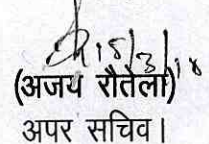 15/3/18
(अजय रौतेला)
अपर सचिव।